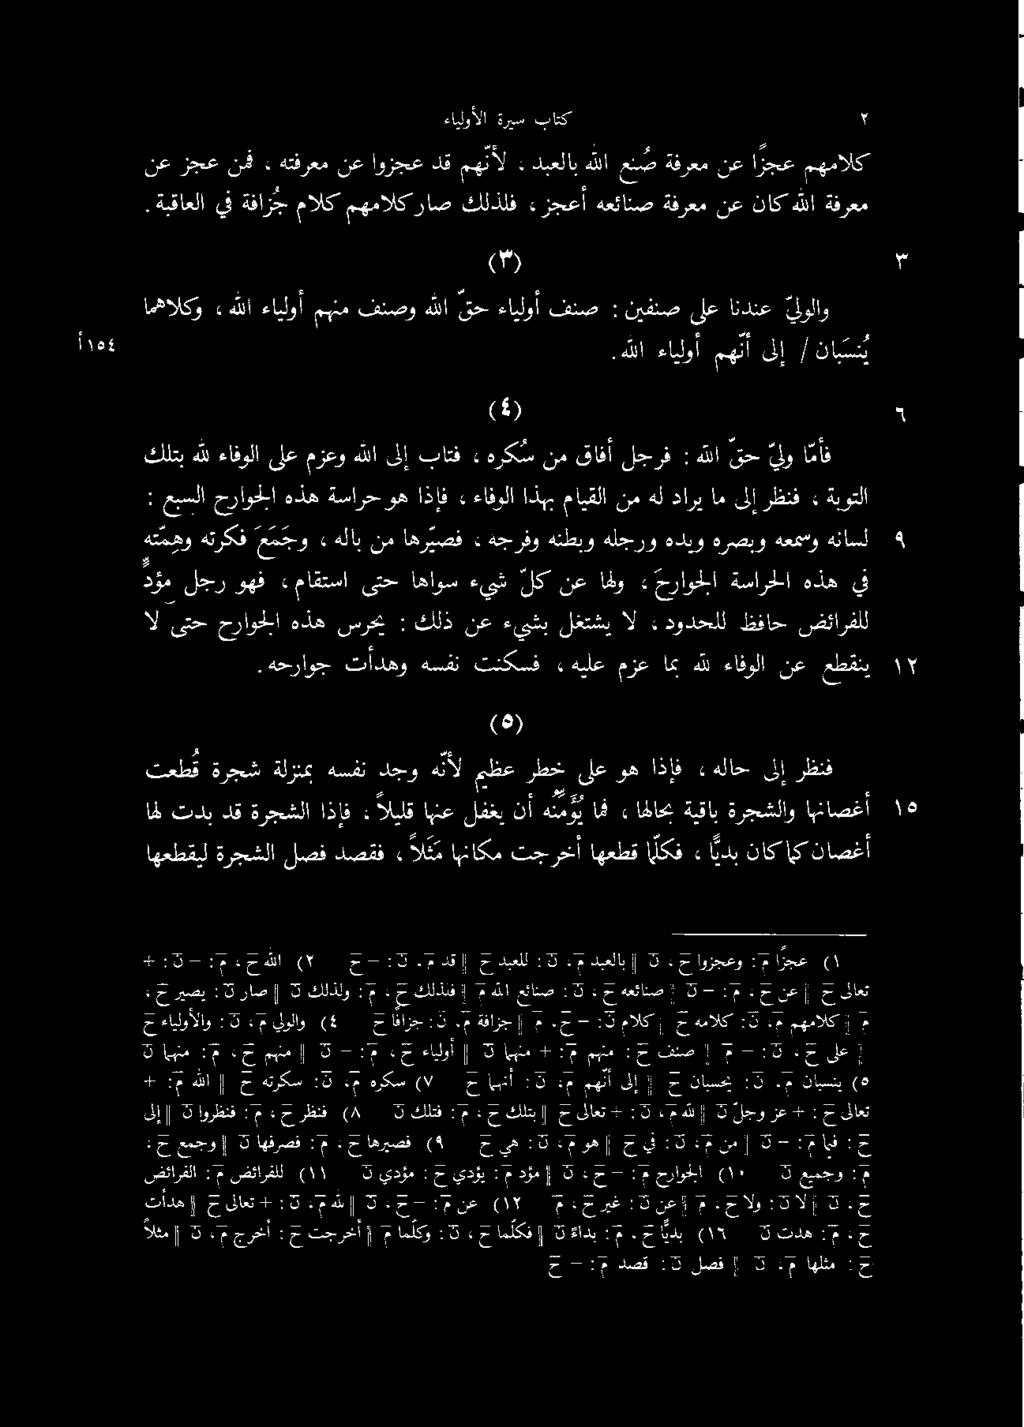 ٢ كتاب سيرة الأولياء
كلامهم عجزًا عن معرفة صُنع الله بالعبد، لأنّهم قد عجزوا عن معرفته، فمن عجز عن
معرفة الله كان عن معرفة صنائعه أعجز، فلذلك صار كلامهم كلام جُزافة في العاقبة.
٣ (٣)
والوليّ عندنا على صنفين: صنف أولياء حقّ الله وصنف منهم أولياء الله، وكلاهما
يُنسَبان / إلى أنّهم أولياء الله. ١٥٤أ
٦ (٤)
فأمّا وليّ حقّ الله: فرجل أفاق من سُكره، فتاب إلى الله وعزم على الوفاء لله بتلك
التوبة، فنظر إلى ما يراد له من القيام بهذا الوفاء، فإذا هو حراسة هذه الجوارح السبع:
٩ لسانه وسمعه وبصره ويديه ورجله وبطنه وفرجه، فصيّرها من باله، وجَمَعَ فكرته وهِمّته
في هذه الحراسة الجوارحَ، ولها عن كلّ شيء سواها حتى استقام، فهو رجل مؤدٍّ
للفرائض حافظ للحدود، لا يشتغل بشيء عن ذلك: يحرس هذه الجوارح حتى لا
١٢ ينقطع عن الوفاء لله بما عزم عليه، فسكنت نفسه وهدأت جوارحه.
(٥)
فنظر إلى حاله، فإذا هو على خطر عظيم لأنّه وجد نفسه بمنزلة شجرة قُطعت
١٥ أغصانها والشجرة باقية بحالها، فما يُؤَمّنُه أن يغفل عنها قليلاً، فإذا الشجرة قد بدت لها
أغصان كما كان بديًّا، فكلّما قطعها أخرجت مكانها مَثَلاً، فقصد فصل الشجرة ليقطعها
١) عجزًا م: وعجزوا ح، ن || بالعبد م، ن: للعبد ح || قد م، ن: – ح ٢) الله ح، م: – ن: +
تعالى ح || عن ح، م: – ن || صنائعه ح، ن: صنائع الله م || فلذلك ح، م: ولذلك ن || صار ن: يصير ح،
م || كلامهم م، ن: كلامه ح || كلام ن: – ح، م || جزافة م، ن: جزافًا ح ٤) والولي م، ن: والأولياء ح
|| على ح، ن: – م || صنف ح: منهم م: + منهما ن || أولياء ح، م: – ن || منهم ح، م: منهما ن
٥) ينسبان م، ن: يحسبان ح || إلى أنّهم م، ن: أنهما ح ٧) سكره م، ن: سكرته ح || الله م: +
تعالى ح: + عز وجلّ ن || لله م، ن: + تعالى ح || بتلك ح، م: فتلك ن ٨) فنظر ح، م: فنظروا ن || إلى
ح: فيما م: – ن || من م، ن: في ح || هو م، ن: هي ح ٩) فصيرها ح، م: فصرفها ن || وجمع ح،
م: وجميع ن ١٠) الجوارح م: – ح، ن || مؤد م: يؤدي ح: مؤدي ن ١١) للفرائض م: الفرائض
ح، ن || لا ن: ولا ح، م || عن ن: غير ح، م ١٢) عن م: – ح، ن || لله م، ن: + تعالى ح || هدأت
ح، م: هدت ن ١٦) بديًّا ح، م: بداءً ن || فكلّما ح، ن: وكلّما م || أخرجت ح: أخرج م، ن || مثلاً
ح: مثلها م، ن || فصل ن: قصد م: – ح